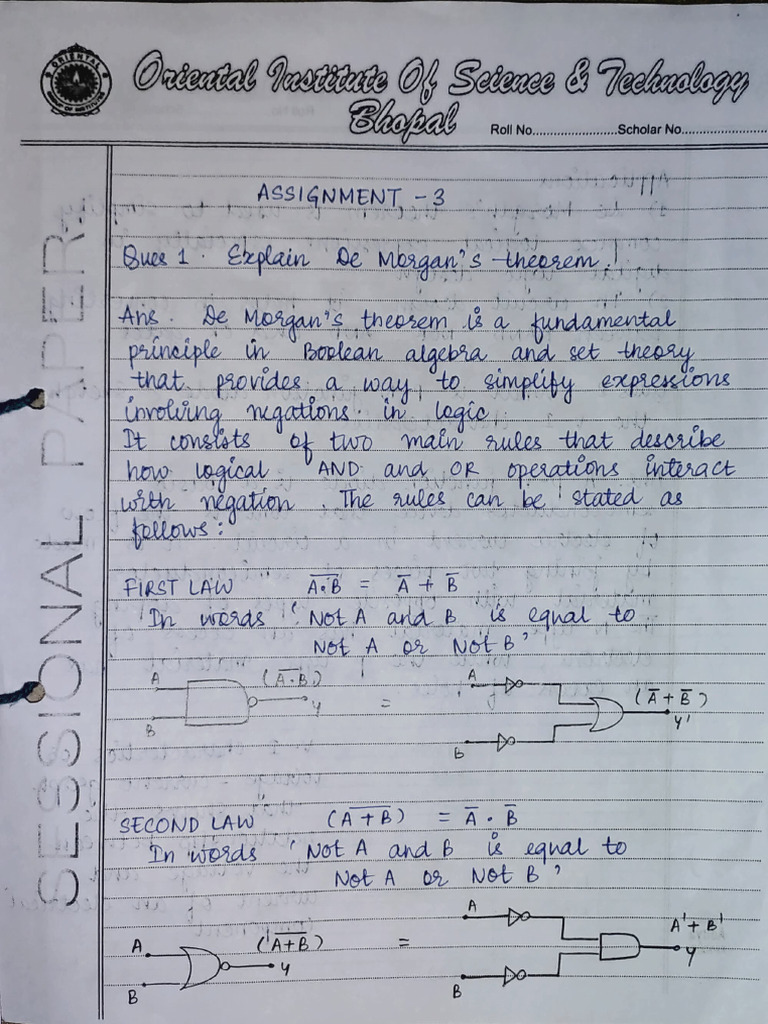 ORIENTAL
GROUP OF INSTITUTES
Oriental Institute Of Science & Technology
Bhopal
Roll No........................Scholar No........................
SESSIONAL PAPER
ASSIGNMENT - 3
Ques 1. Explain De Morgan's theorem.
Ans. De Morgan's theorem is a fundamental
principle in Boolean algebra and set theory
that provides a way to simplify expressions
involving negations in logic
It consists of two main rules that describe
how logical AND and OR operations interact
with negation. The rules can be stated as
follows:
FIRST LAW A̅.̅B̅ = A̅ + B̅
In words 'Not A and B is equal to
Not A or Not B'
A (A̅.̅B̅) A
Y = (A̅ + B̅)
B Y'
B
SECOND LAW (A̅+̅B̅) = A̅ . B̅
In words 'Not A and B is equal to
Not A or Not B'
A (A̅+̅B̅) A A' + B'
Y = Y
B B